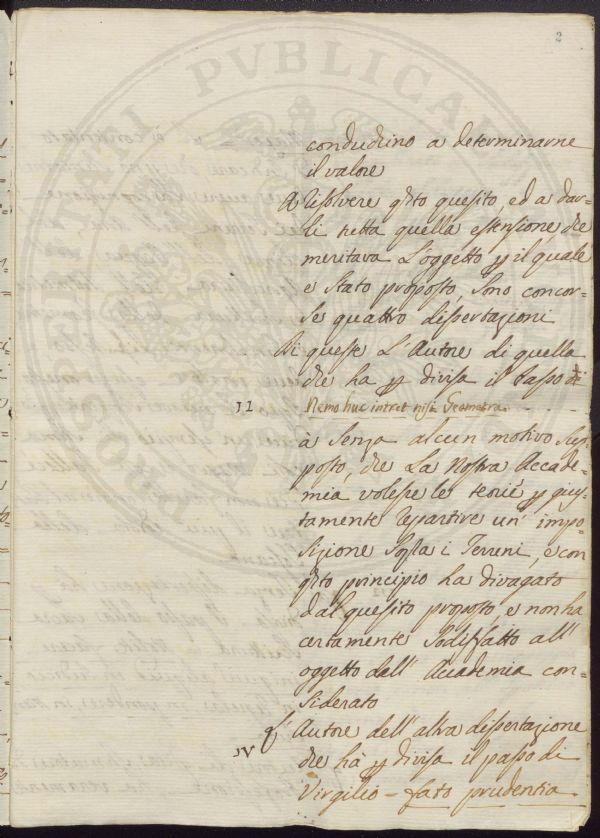 2
conduchino a determinarne
il valore
A risolvere qsto quesito, ed a dar=
li tutta quella estensione, che
meritava l'oggetto p il quale
e stato proposto, sono concor=
se quattro dissertazioni
Di queste L'Autore di quella
che ha p divisa il Passo di
II Nemo huc intret nisi Geometra.
à senza alcun motivo sup=
posto, che La Nostra Accade=
mia volesse le teorie p gius=
tamente repartire un' impo=
sizione sopra i Terreni, e con
qsto principio ha divagato
dal quesito proposto, e non ha
certamente sodisfatto all'
oggetto dall' Accademia con=
siderato
L' Autore dell' altra dissertazione
IV che hà p divisa il passo di
Virgilio = fato prudentia.